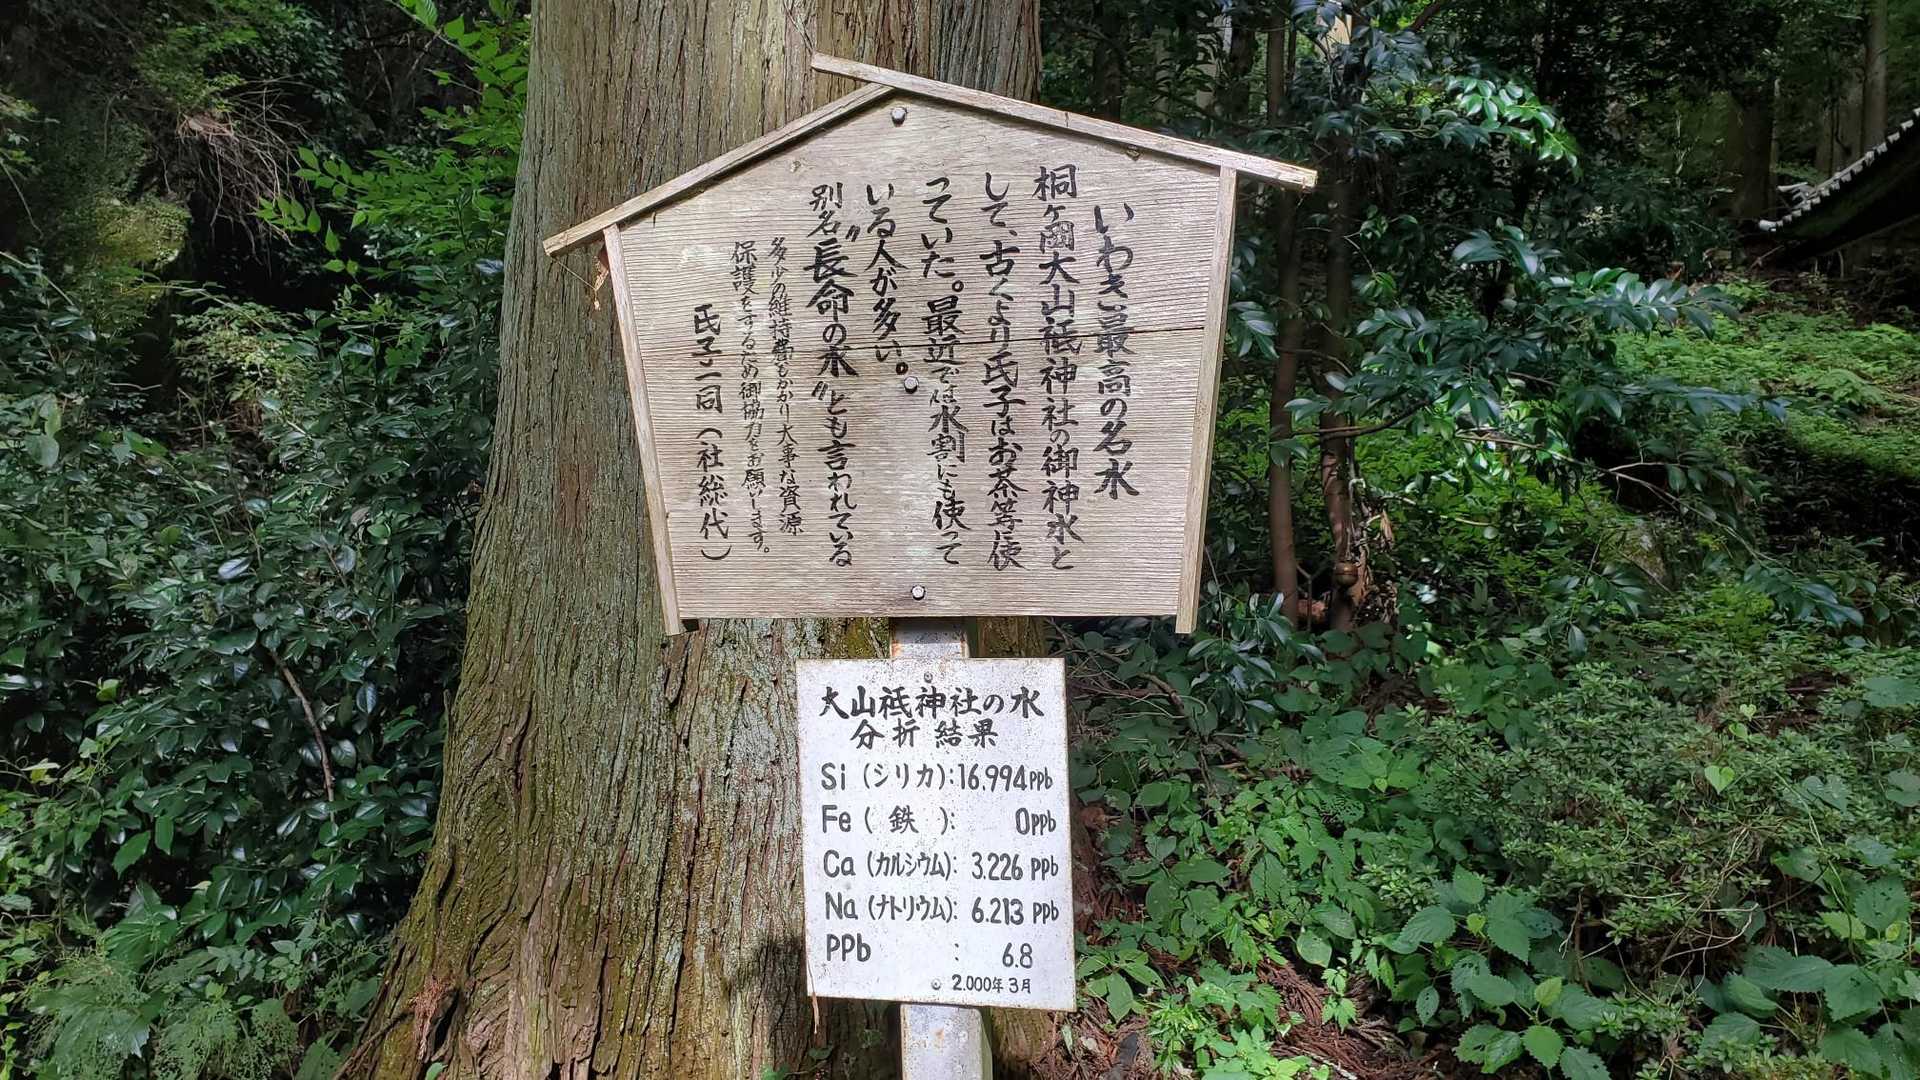 いわき最高の名水
桐ヶ岡大山祗神社の御神水と
して、古くより氏子はお茶等に使
っていた。最近では水割にも使って
いる人が多い。
別名〝長命の水〟とも言われている
多少の維持費もかかり大事な資源
保護をするため御協力をお願いします。
氏子一同(社総代)
大山祗神社の水
分析結果
Si(シリカ):16.994ppb
Fe(鉄):0ppb
Ca(カルシウム):3.226ppb
Na(ナトリウム):6.213ppb
PPb:6.8
2.000年3月